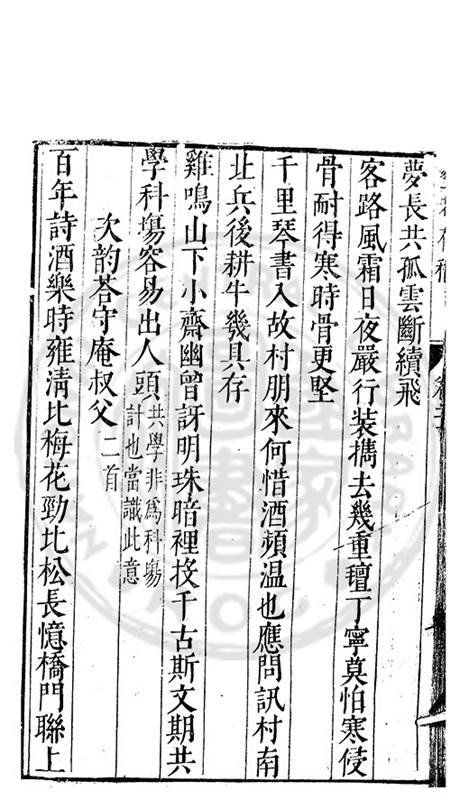 夢長共孤雲斷續飛
客路風霜日夜嚴行裝擕去幾重氊丁寧莫怕寒侵
骨耐得寒時骨更堅
千里琴書入故村朋來何惜酒頻温也應問訊村南
北兵後耕牛幾具存
雞鳴山下小齋幽曾訝明珠暗裡投千古斯文期共
學科塲容易出人頭共學非爲科塲計也當識此意
次韵荅守庵叔父二首
百年詩酒樂時雍淸比梅花勁比松長憶橋門聯上